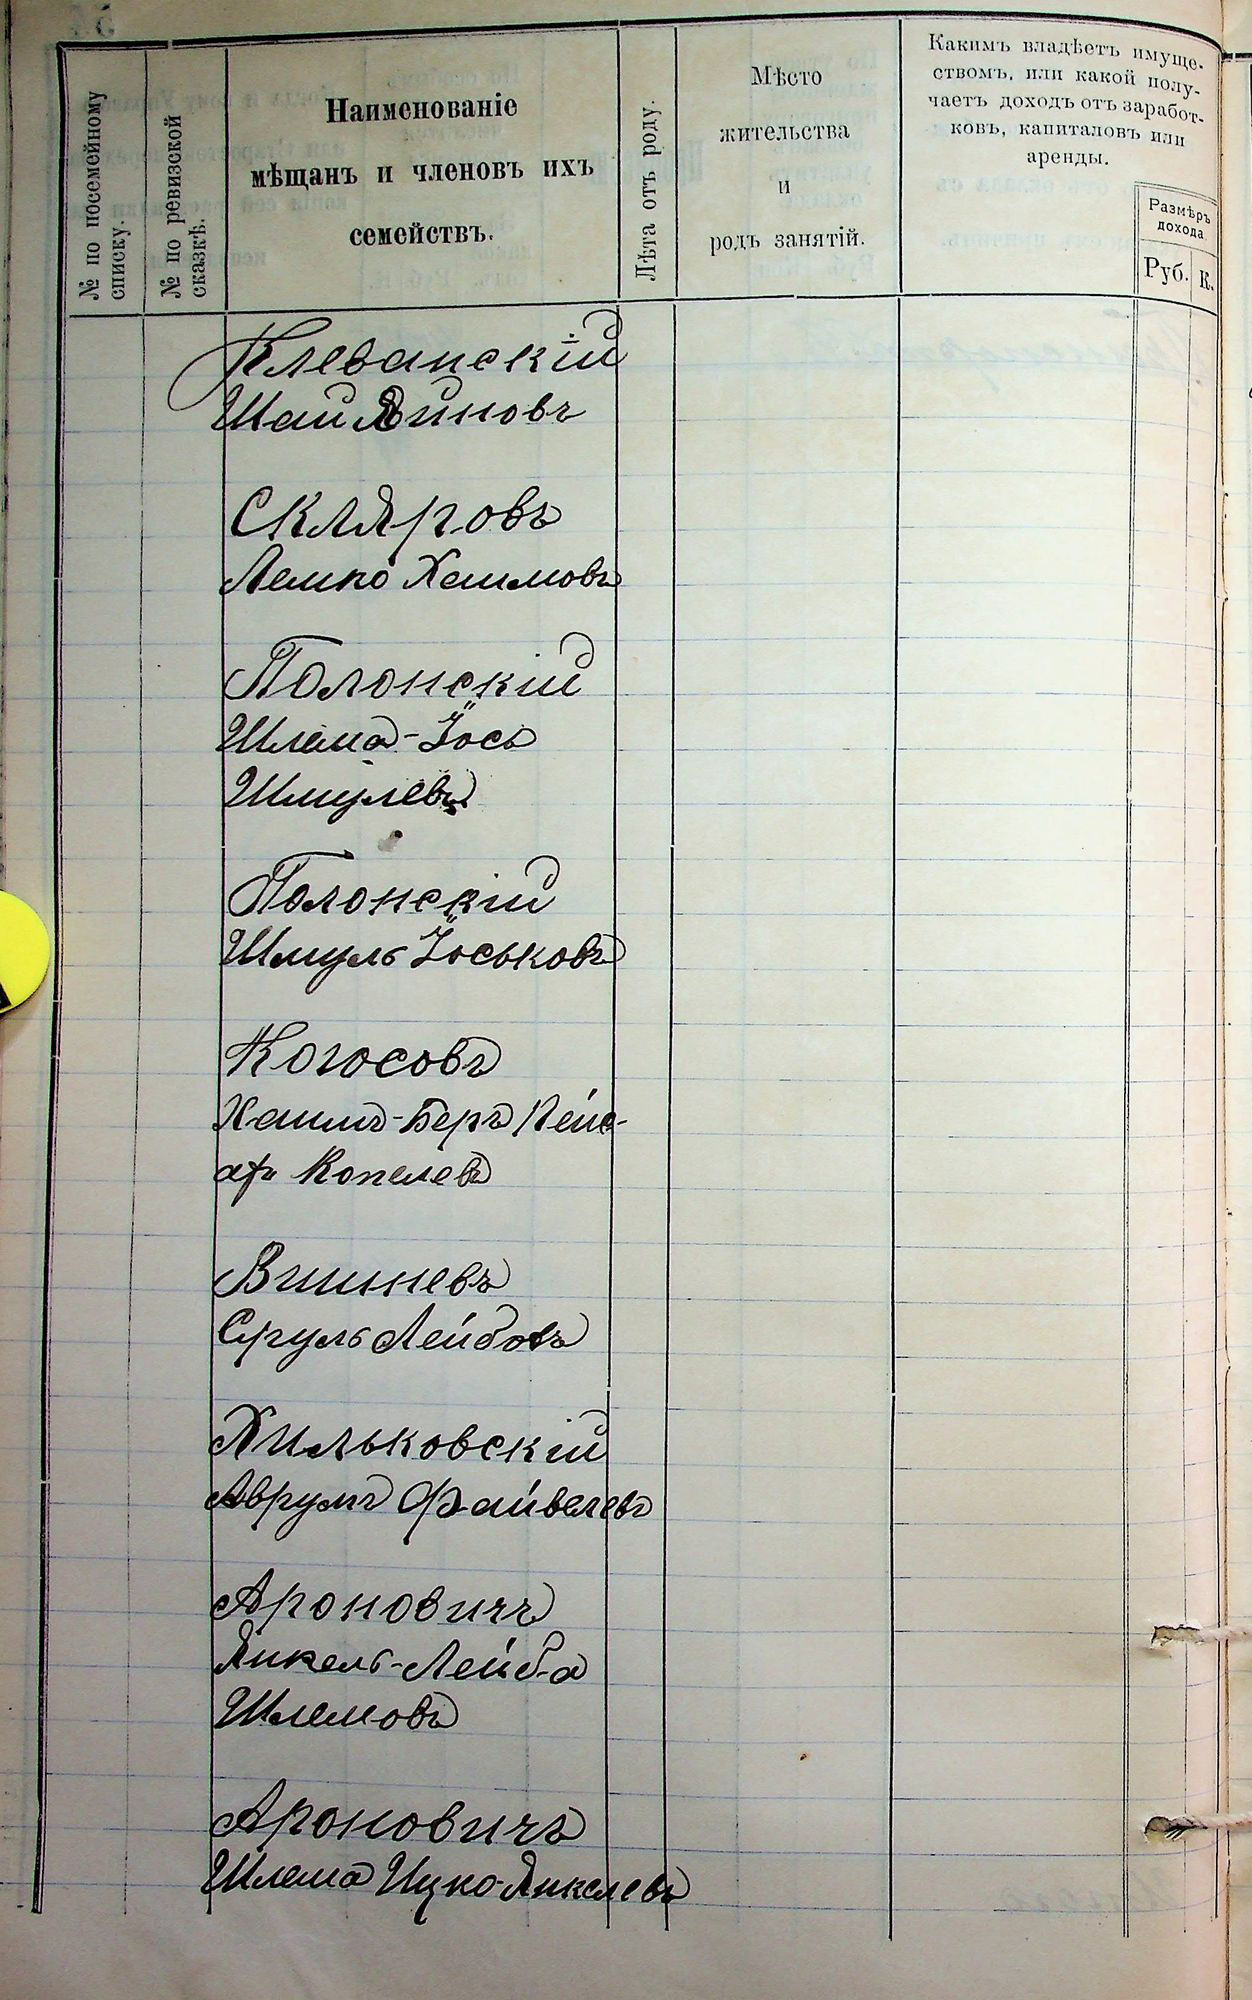 № по посемейному
списку.
№ по ревизской
сказкѣ.
Наименованіе
мѣщанъ и членовъ ихъ
семействъ.
Лѣта отъ роду.
Мѣсто
жительства
и
родъ занятій.
Какимъ владѣетъ имуще-
ствомъ, или какой полу-
чаетъ доходъ отъ заработ-
ковъ, капиталовъ или
аренды.
Размѣръ
дохода
Руб.
К.
Клеванскій
Шаи
Скляровъ
Лемко Хаимовъ
Полонскій
Шлема-Іось
Шмулевъ
Полонскій
Шмуль Іоськовъ
Когосовъ
Хаимъ-Беръ
Копелевъ
Вишневъ
Сруль Лейбовъ
Хильковскій
Аврумъ Файвелевъ
Ароновичъ
Янкель-Лейба
Шлемовъ
Ароновичъ
Шлема Ицко-Янкелевъ